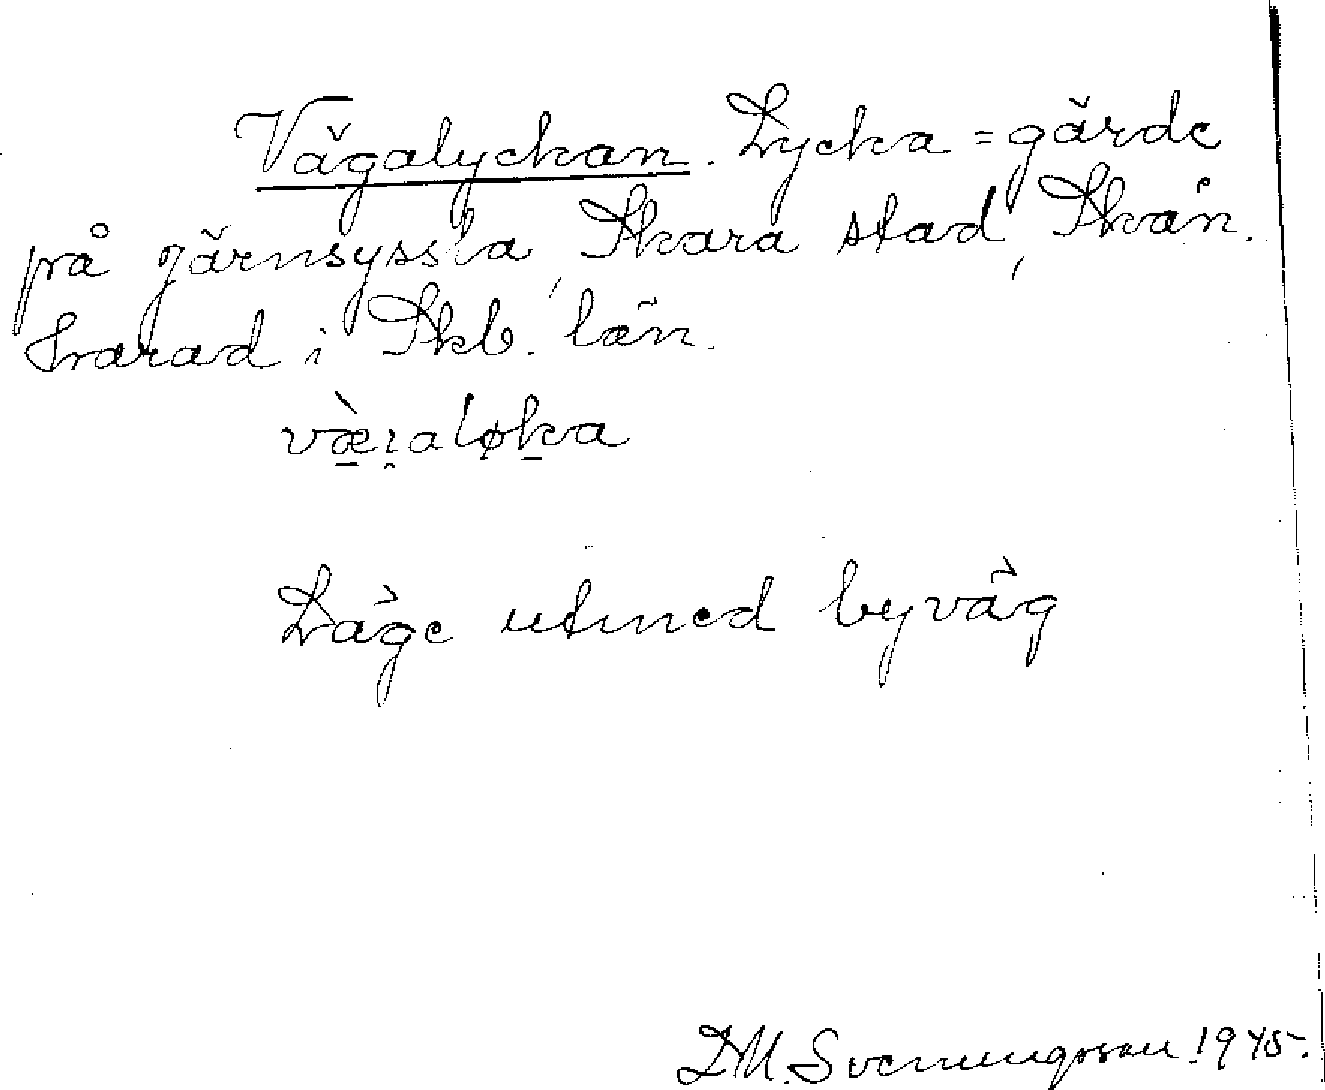 Vägalyckan. Lycka = gärde
på Järnsyssla, Skara stad, Skån.
härad i Skb. län.
væ̀ɪaløka
Läge utmed byväg
D.M. Svenungsson 1945.